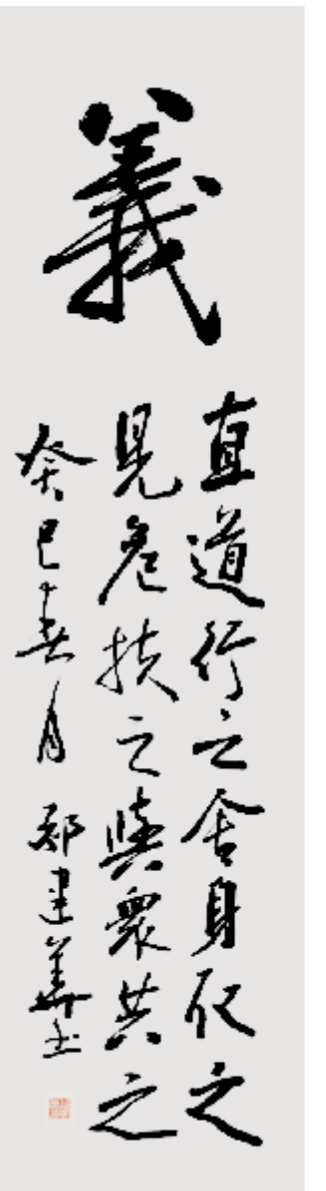 義
直道行之舍身取之
見危扶之與衆共之
癸巳春月 郑建華书